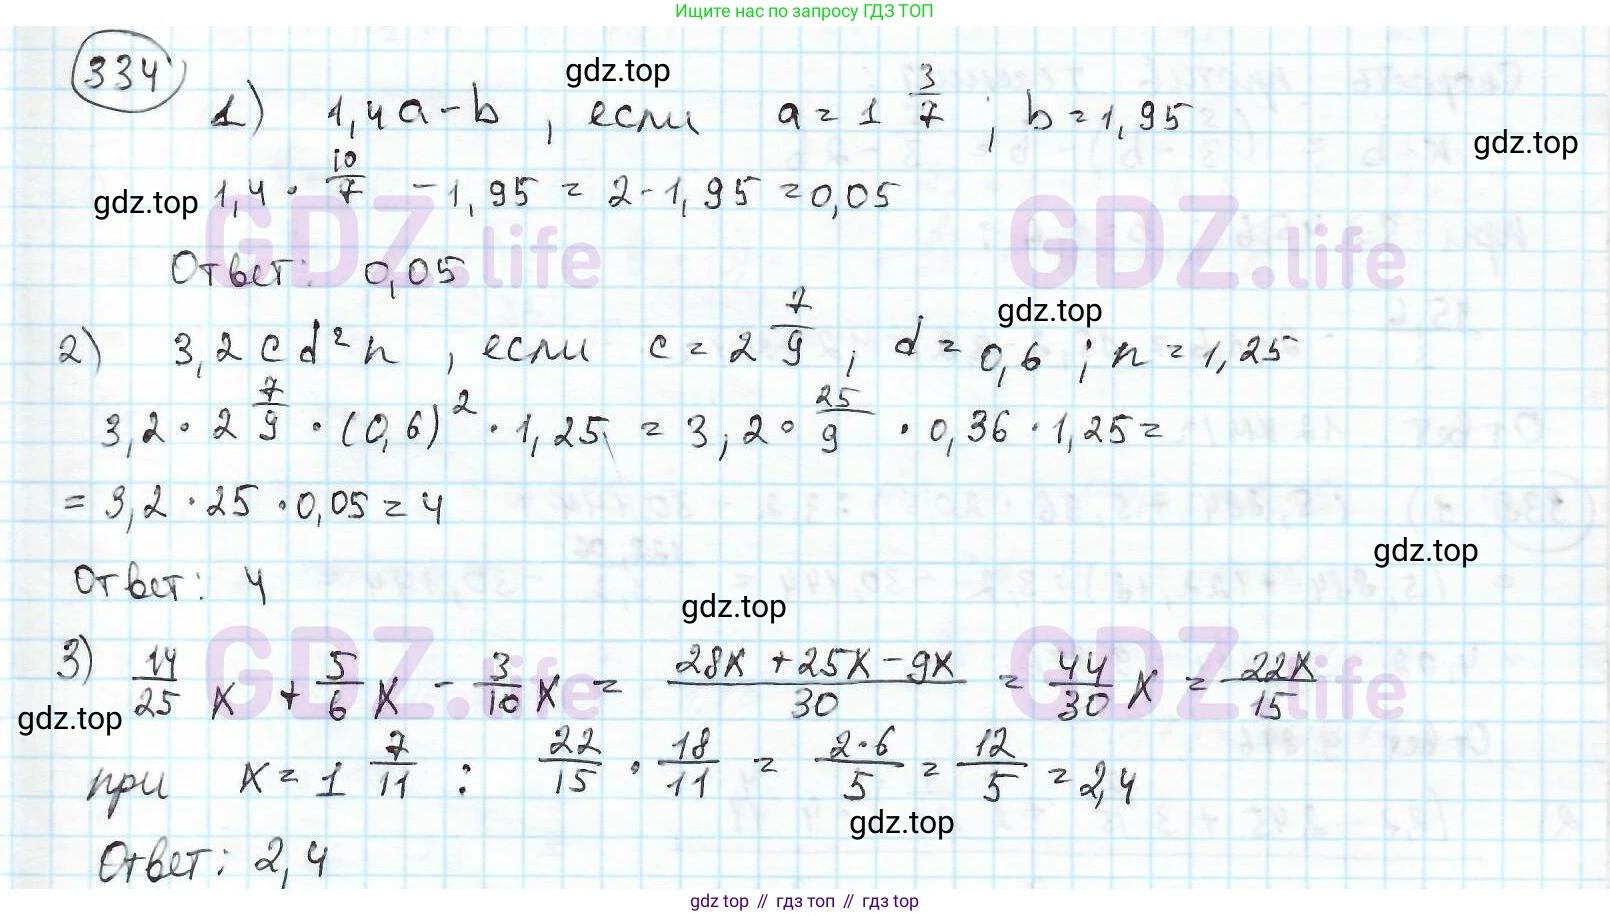 Ищите нас по запросу ГДЗ ТОП
334
gdz.top
1) 1,4a - b , если a = 1 3/7 ; b = 1,95
gdz.top
1,4 · 10/7 - 1,95 = 2 - 1,95 = 0,05
gdz.top
GDZ.life GDZ.life
Ответ: 0,05
gdz.top
2) 3,2cd²n , если c = 2 7/9 ; d = 0,6 ; n = 1,25
3,2 · 2 7/9 · (0,6)² · 1,25 = 3,2 · 25/9 · 0,36 · 1,25 =
= 3,2 · 25 · 0,05 = 4
gdz.top
Ответ: 4
gdz.top
3) 14/25 x + 5/6 x - 3/10 x = (28x + 25x - 9x)/30 = 44/30 x = 22x/15
GDZ.life GDZ.life
gdz.top
при x = 1 7/11 : 22/15 · 18/11 = (2·6)/5 = 12/5 = 2,4
gdz.top
Ответ: 2,4
gdz.top // гдз топ // gdz top